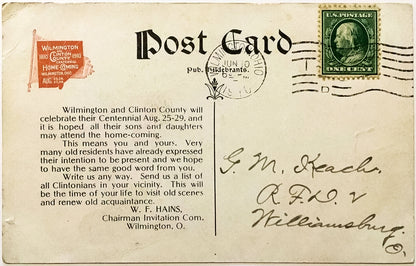 WILMINGTON
AND
CLINTON
COUNTY
CENTENNIAL
1810 1910
HOME COMING
WILMINGTON, OHIO
Post Card
Pub. Hildebrants.
WILMINGTON OHIO
JUN 10
1910
U.S. POSTAGE
ONE CENT
Wilmington and Clinton County will
celebrate their Centennial Aug. 25-29, and
it is hoped all their sons and daughters
may attend the home-coming.
This means you and yours. Very
many old residents have already expressed
their intention to be present and we hope
to have the same good word from you.
Write us any way. Send us a list of
all Clintonians in your vicinity. This will
be the time of your life to visit old scenes
and renew old acquaintance.
W. F. HAINS,
Chairman Invitation Com.
Wilmington, O.
G. M. Keach
R.F.D. 2
Williamsburg
O.